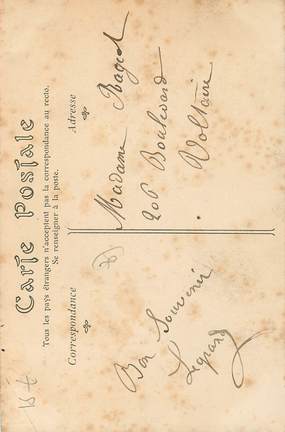 Carte Postale
Tous les pays étrangers n'acceptent pas la correspondance au recto.
Se renseigner à la poste.
Correspondance
Adresse
Bon Souvenir
Legrand
Madame Ragot
206 Boulevard
Voltaire